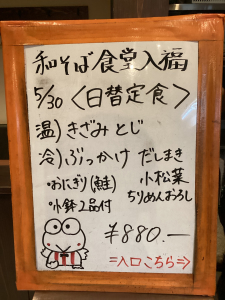 和そば食堂入福
5/30 〈日替定食〉
温) きざみとじ
冷) ぶっかけ だしまき
・おにぎり(鮭) 小松菜
・小鉢2品付 ちりめんおろし
¥880.—
⇒入口こちら⇒